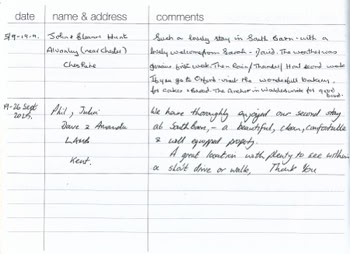 date name & address comments
5/9-19.9. John & Eleanor Hunt Such a lovely stay in South Barn - with a
Alvanley (near Chester) lovely welcome from Sarah - David. The weather was
Cheshire glorious first week. Then Rain/Thunder/Hail second week
If you go to Oxford visit the wonderful bakery,
for cakes & Bread. The Anchor in for good
food.
19-26 Sept Phil, Julie We have thoroughly enjoyed our second stay
Dave & Amanda at South Barn, - a beautiful, clean, comfortable
Lamb & well equipped property.
Kent. A great location with plenty to see within
a short drive or walk, Thank You